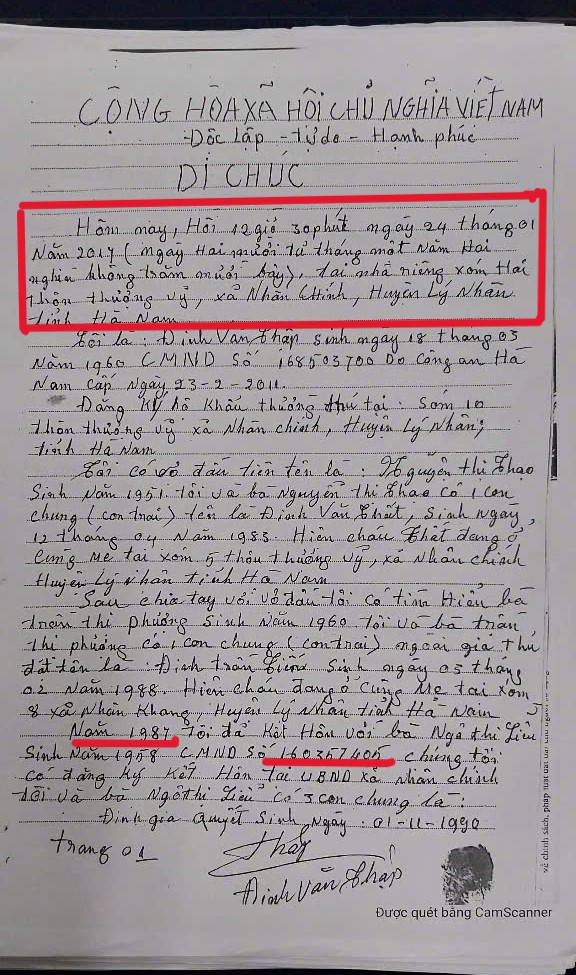 CỘNG HÒA XÃ HỘI CHỦ NGHĨA VIỆT NAM
Độc lập - Tự do - Hạnh phúc
DI CHÚC
Hôm nay, Hồi 12 giờ 30 phút ngày 24 tháng 01
Năm 2017 (ngày Hai mươi tư tháng một Năm Hai
nghìn không trăm mười bảy), tại nhà riêng xóm Hai
thôn thượng vỹ, xã Nhân Chính, Huyện Lý Nhân
tỉnh Hà Nam
Tôi là: Đinh Văn Thập sinh ngày 18 tháng 03
Năm 1960 CMND Số 168503700 Do Công an Hà
Nam cấp ngày 23-2-2011.
Đăng Ký hộ Khẩu thường trú tại: Sóm 10
thôn thượng vỹ xã Nhân chính, Huyện Lý Nhân;
tỉnh Hà Nam
Tôi có vợ đầu tiên tên là: Nguyễn thị Thạo
Sinh Năm 1951. Tôi và bà Nguyễn thị Thao có 1 con
chung (con trai) tên là Đinh Văn Thất, Sinh ngày
12 tháng 04 Năm 1985. Hiện cháu Thất đang ở
cùng mẹ tại xóm 5 thôn thượng vỹ, xã Nhân chính
Huyện Lý Nhân tỉnh Hà Nam
Sau chia tay với vợ đầu tôi có tìm Hiểu bà
trần thị phượng Sinh Năm 1960 tôi và bà trần
thị phượng có 1 con chung (con trai) ngoài giá thú
đặt tên là: Đinh trần Sinh ngày 05 tháng
02 Năm 1988. Hiện cháu đang ở cùng Mẹ tại xóm
8 xã Nhân Khang, Huyện Lý Nhân tỉnh Hà Nam
Năm 1987 Tôi đã Kết Hôn với bà Ngô thị Liễu
Sinh Năm 1958 CMND Số 160357405 chúng tôi
có đăng Ký Kết Hôn tại UBND xã Nhân chính
Tôi và bà Ngô thị Liễu có 3 con chung là:
Đinh gia Quyết Sinh Ngày: 01-11-1990
trang 01
Thập
Đinh Văn Thập
Được quét bằng CamScanner